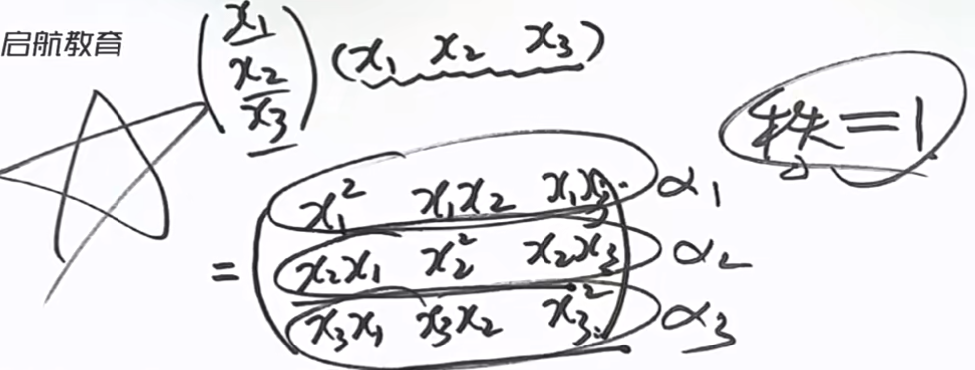 启航教育
(x₁ x₂ x₃) (x₁ x₂ x₃)
秩=1
= (x₁² x₁x₂ x₁x₃ α₁
x₂x₁ x₂² x₂x₃ α₂
x₃x₁ x₃x₂ x₃²) α₃